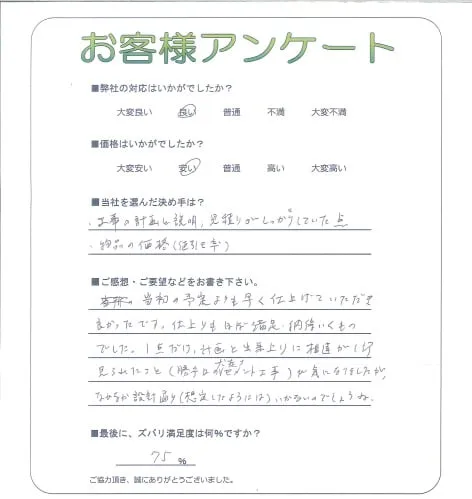 お客様アンケート
■弊社の対応はいかがでしたか？
大変良い 良い 普通 不満 大変不満
■価格はいかがでしたか？
大変安い 安い 普通 高い 大変高い
■当社を選んだ決め手は？
・工事の計画と説明，見積りがしっかりしていた点
・物品の価格（値引き率）
■ご感想・ご要望などをお書き下さい。
当初の予定よりも早く仕上げていただき
良かったです。仕上りもほぼ満足・納得いくもの
でした。1点だけ，計画と出来上りに相違が
見られたこと（勝手口の セメント工事）が気になりましたが，
なかなか設計通り（想定したようには）いかないのでしょうね。
■最後に、ズバリ満足度は何％ですか？
75 %
ご協力頂き、誠にありがとうございました。